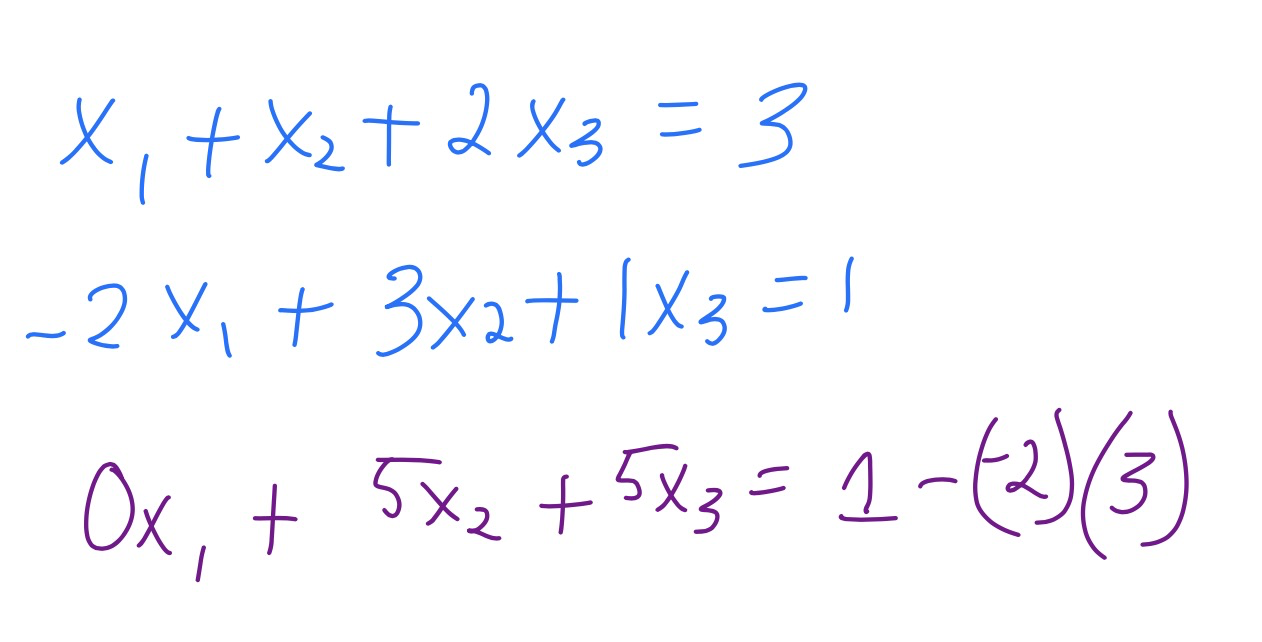 x₁ + x₂ + 2x₃ = 3
-2x₁ + 3x₂ + 1x₃ = 1
0x₁ + 5x₂ + 5x₃ = 1 - (-2)(3)